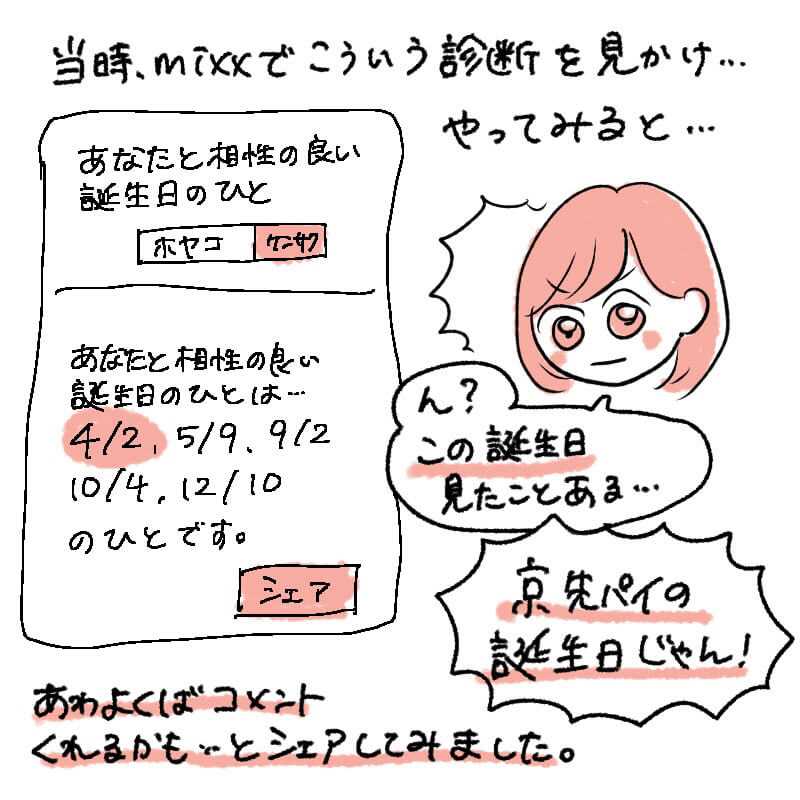 当時、mixxでこういう診断を見かけ…
やってみると…
あなたと相性の良い
誕生日のひと
ホヤコ
ケンサク
あなたと相性の良い
誕生日のひとは…
4/2、5/9、9/2
10/4、12/10
のひとです。
シェア
ん?
この誕生日
見たことある…
京先パイの
誕生日じゃん!
あわよくばコメント
くれるかも…とシェアしてみました。